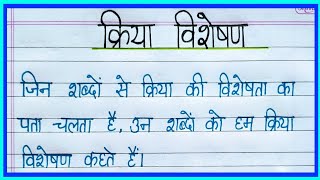 क्रिया विशेषण
जिन शब्दों से क्रिया की विशेषता का
पता चलता है, उन शब्दों को हम क्रिया
विशेषण कहते हैं।